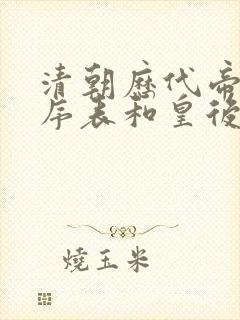 清朝歷代帝
序表和皇後
燒玉米